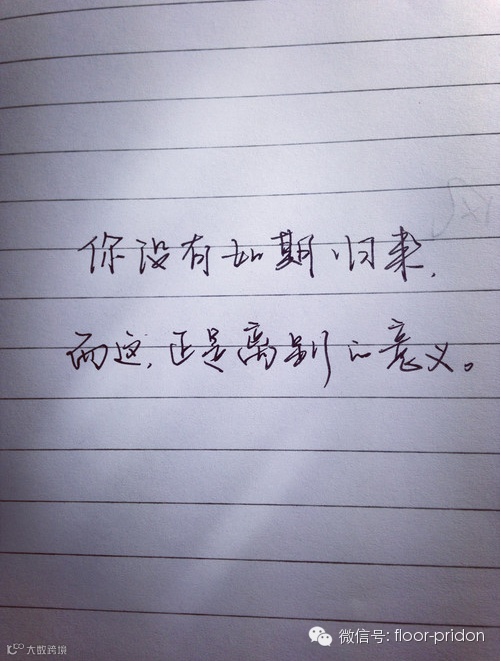 你没有如期归来，
而这，正是离别的意义。
微信号: floor-pridon
大数跨境